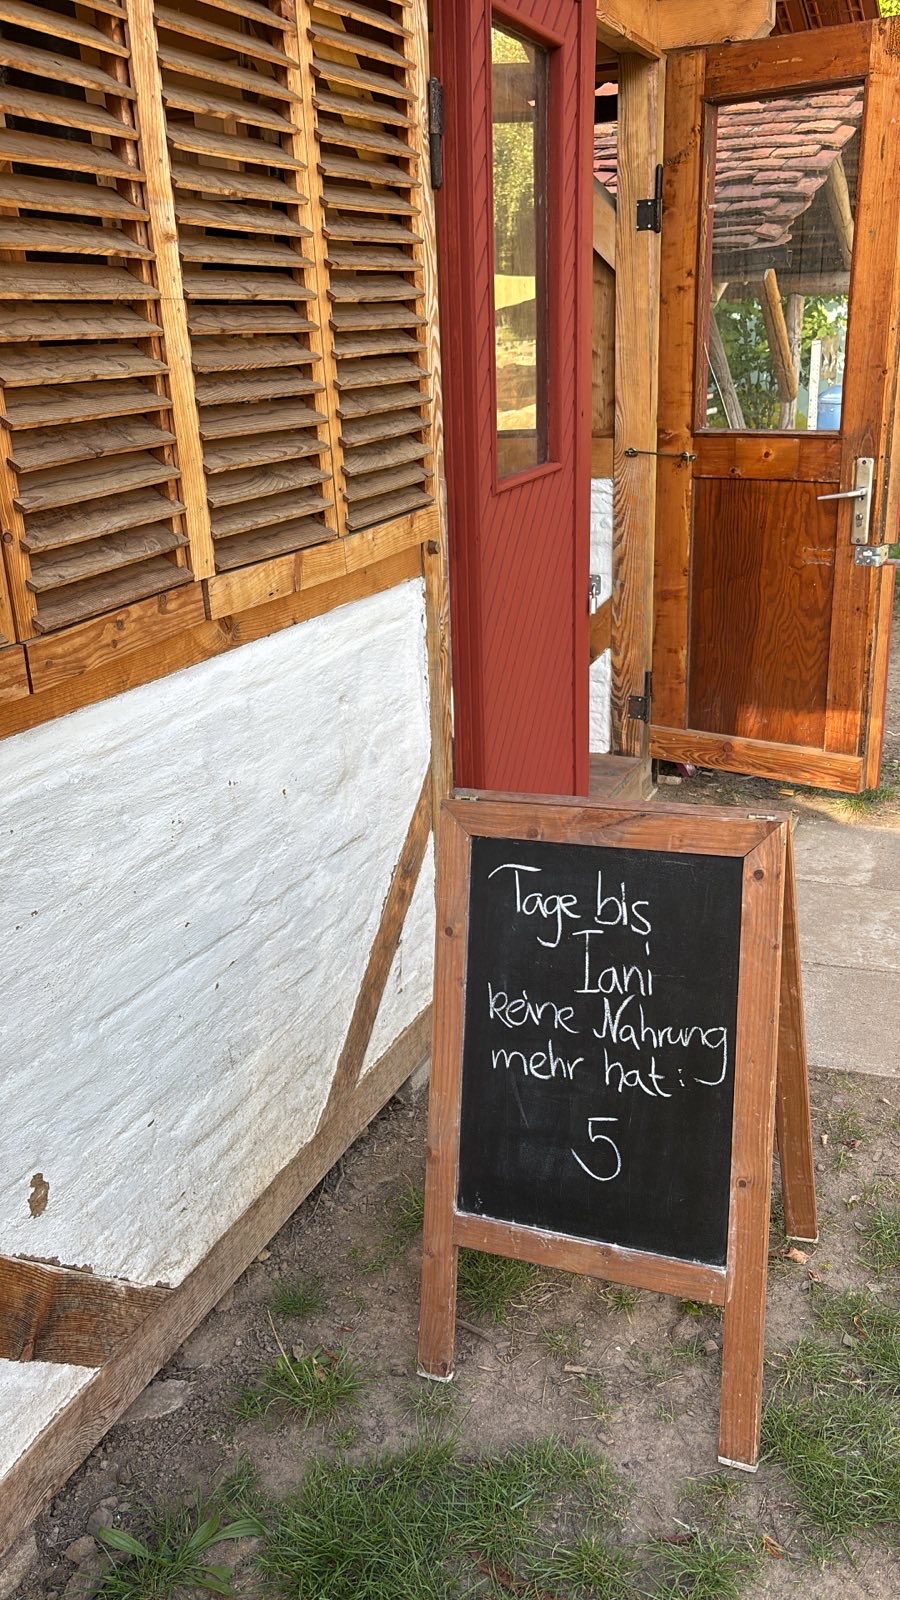 Tage bis
Iani
keine Nahrung
mehr hat:
5